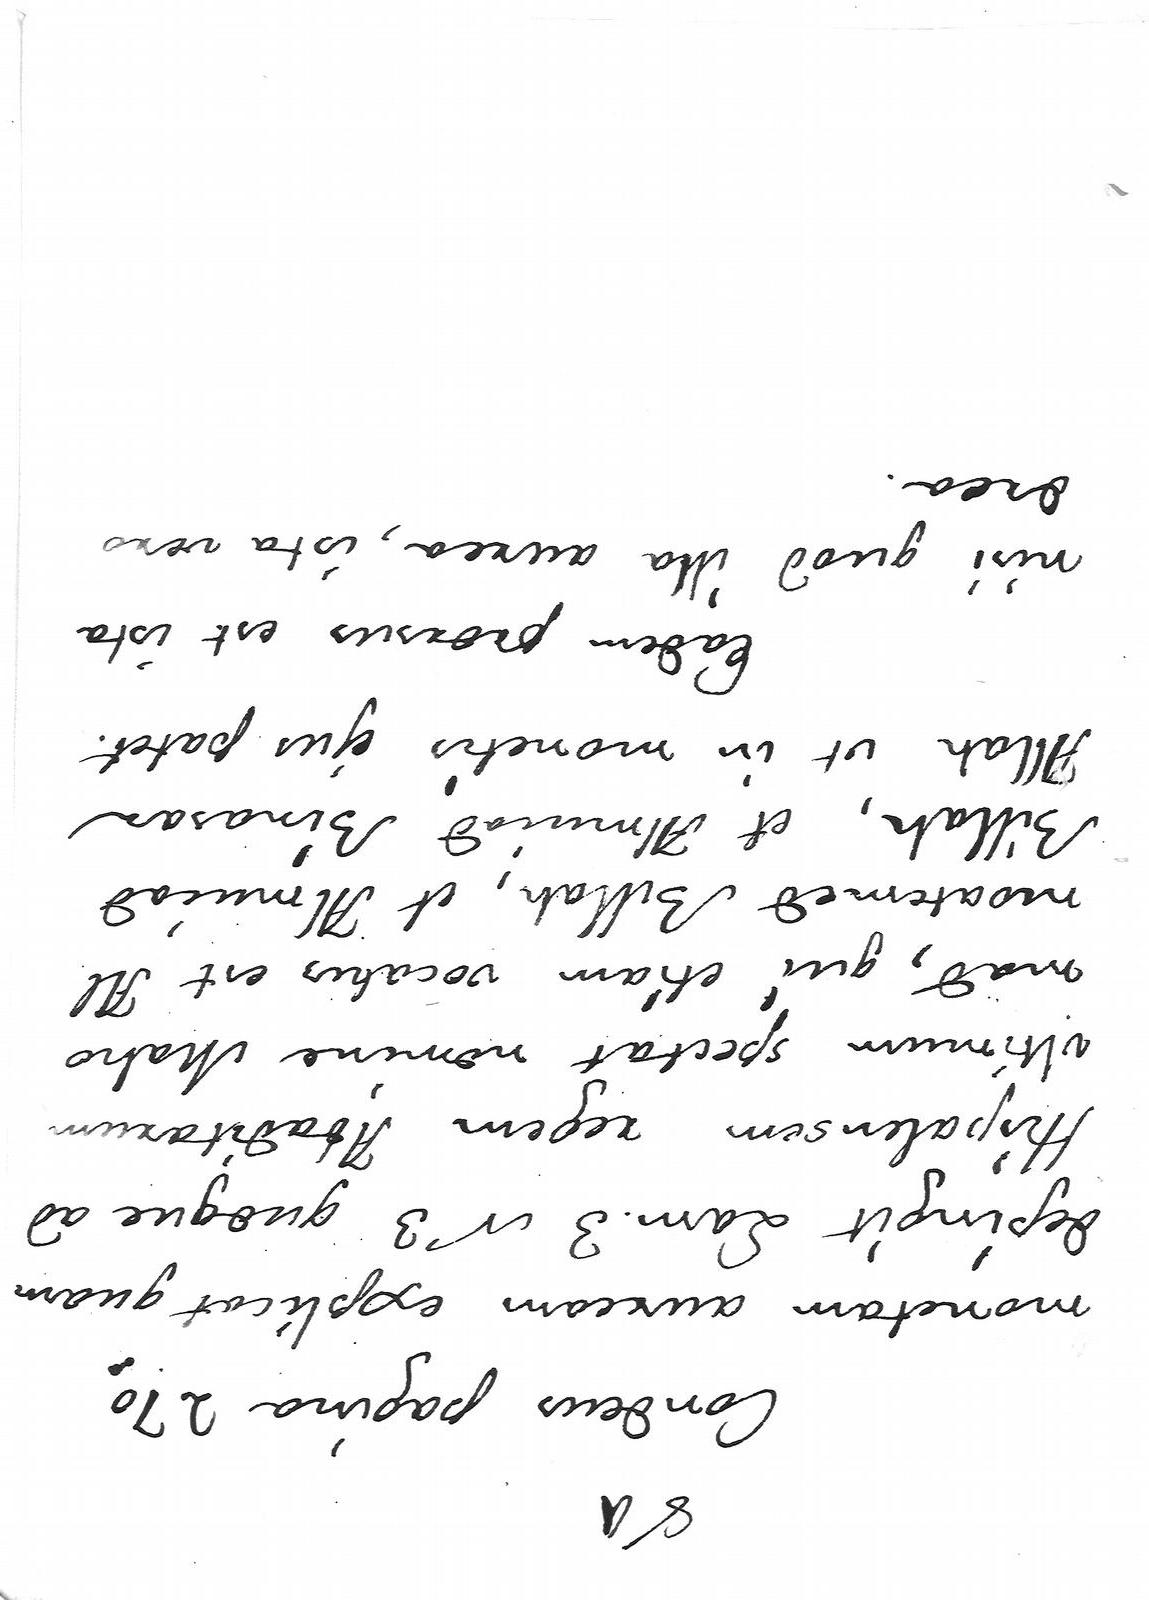 8 A
Condeus pagina 270.
monetam auream explicat quam
depingit Lam. 3 nº 3 quoque ad
Hispalensem regem Abaditarum
ultimum spectat nomine Maho
mad, qui etiam vocatus est Al
muatemed Billah, et Almuiad
Billah, et Almuiad Binasar
Allah ut in monetis ejus patet.
Eadem prorsus est ista
nisi quod illa aurea, ista vero
drea.